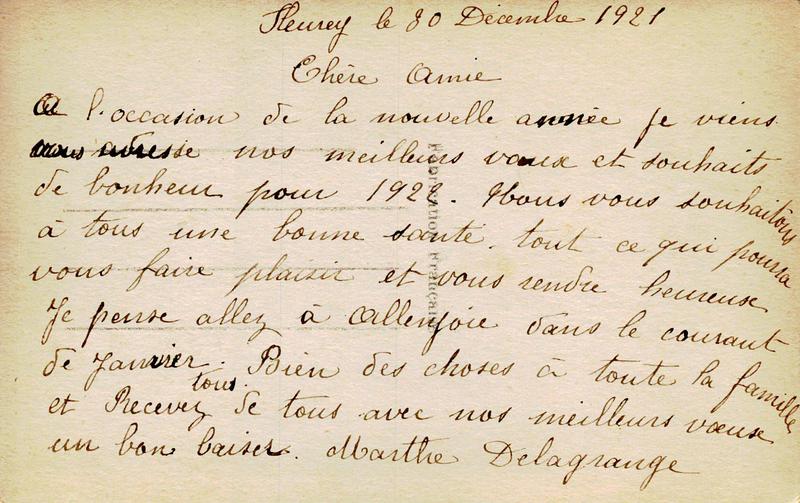 Fleurey le 30 Décembre 1921
Chère Amie
A l'occasion de la nouvelle année je viens
vous adresse nos meilleurs vœux et souhaits
de bonheur pour 1922. Nous vous souhaitons
à tous une bonne santé. tout ce qui pourra
vous faire plaisir et vous rendre heureuse
Je pense allez à Allenjoie dans le courant
de Janvier. Bien des choses à toute la famille
et Recevez tous. de tous avec nos meilleurs vœux
un bon baiser. Marthe Delagrange